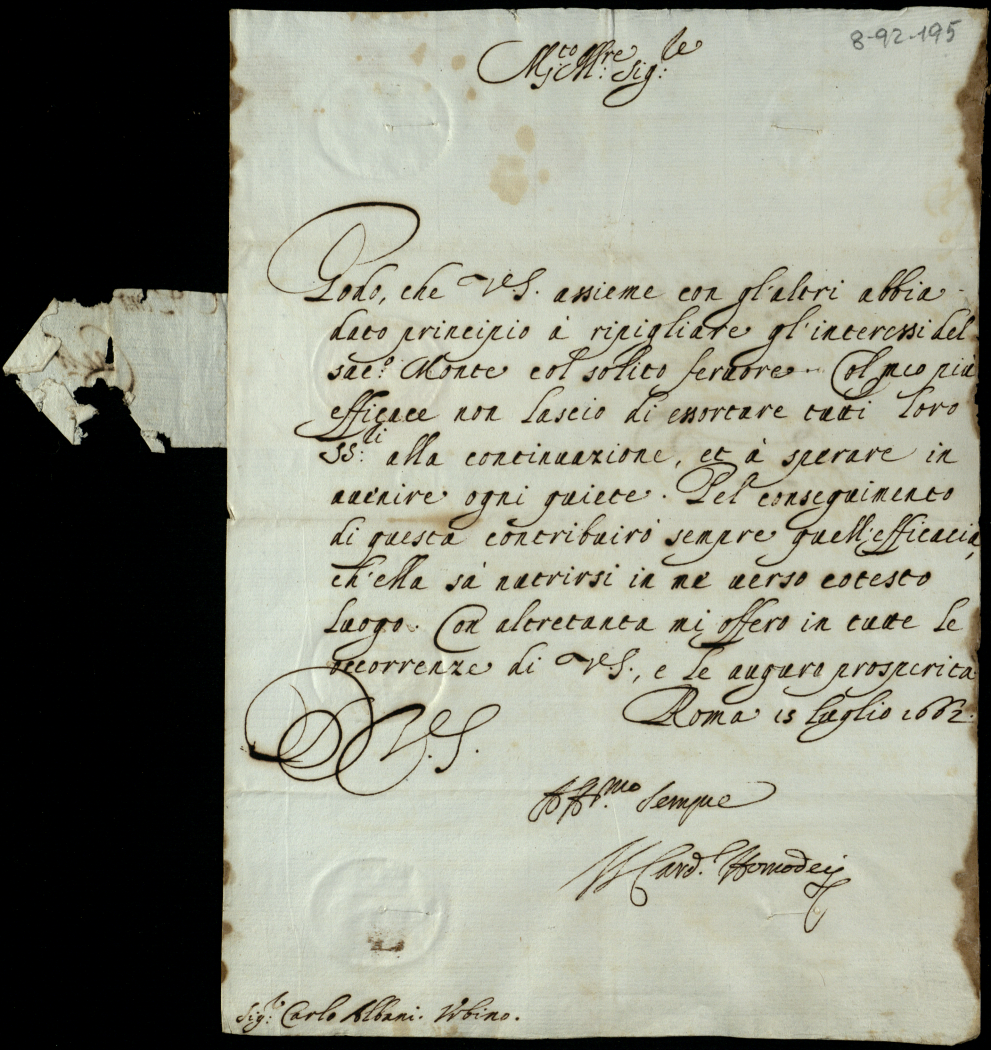 8-92-195
M.to Ill.re Sig.re
Godo, che V.S. assieme con gl'altri abbia
dato principio à ripigliare gl'interessi del
sac.o Monte col solito feruore. Col più
efficace non lascio di essortare tutti loro
SS.ri alla continuazione, et à sperare in
auenire ogni quiete. Pel conseguimento
di questa contribuirò sempre quell'efficacia,
ch'ella sà nutrirsi in me uerso cotesto
luogo. Con altretanta mi offero in tutte le
occorrenze di V.S., e le auguro prosperità
Roma 15 luglio 1662.
D V.S.
Aff.mo sempre
Il Card.l Homodei
Sig.r Carlo Albani. Vrbino.